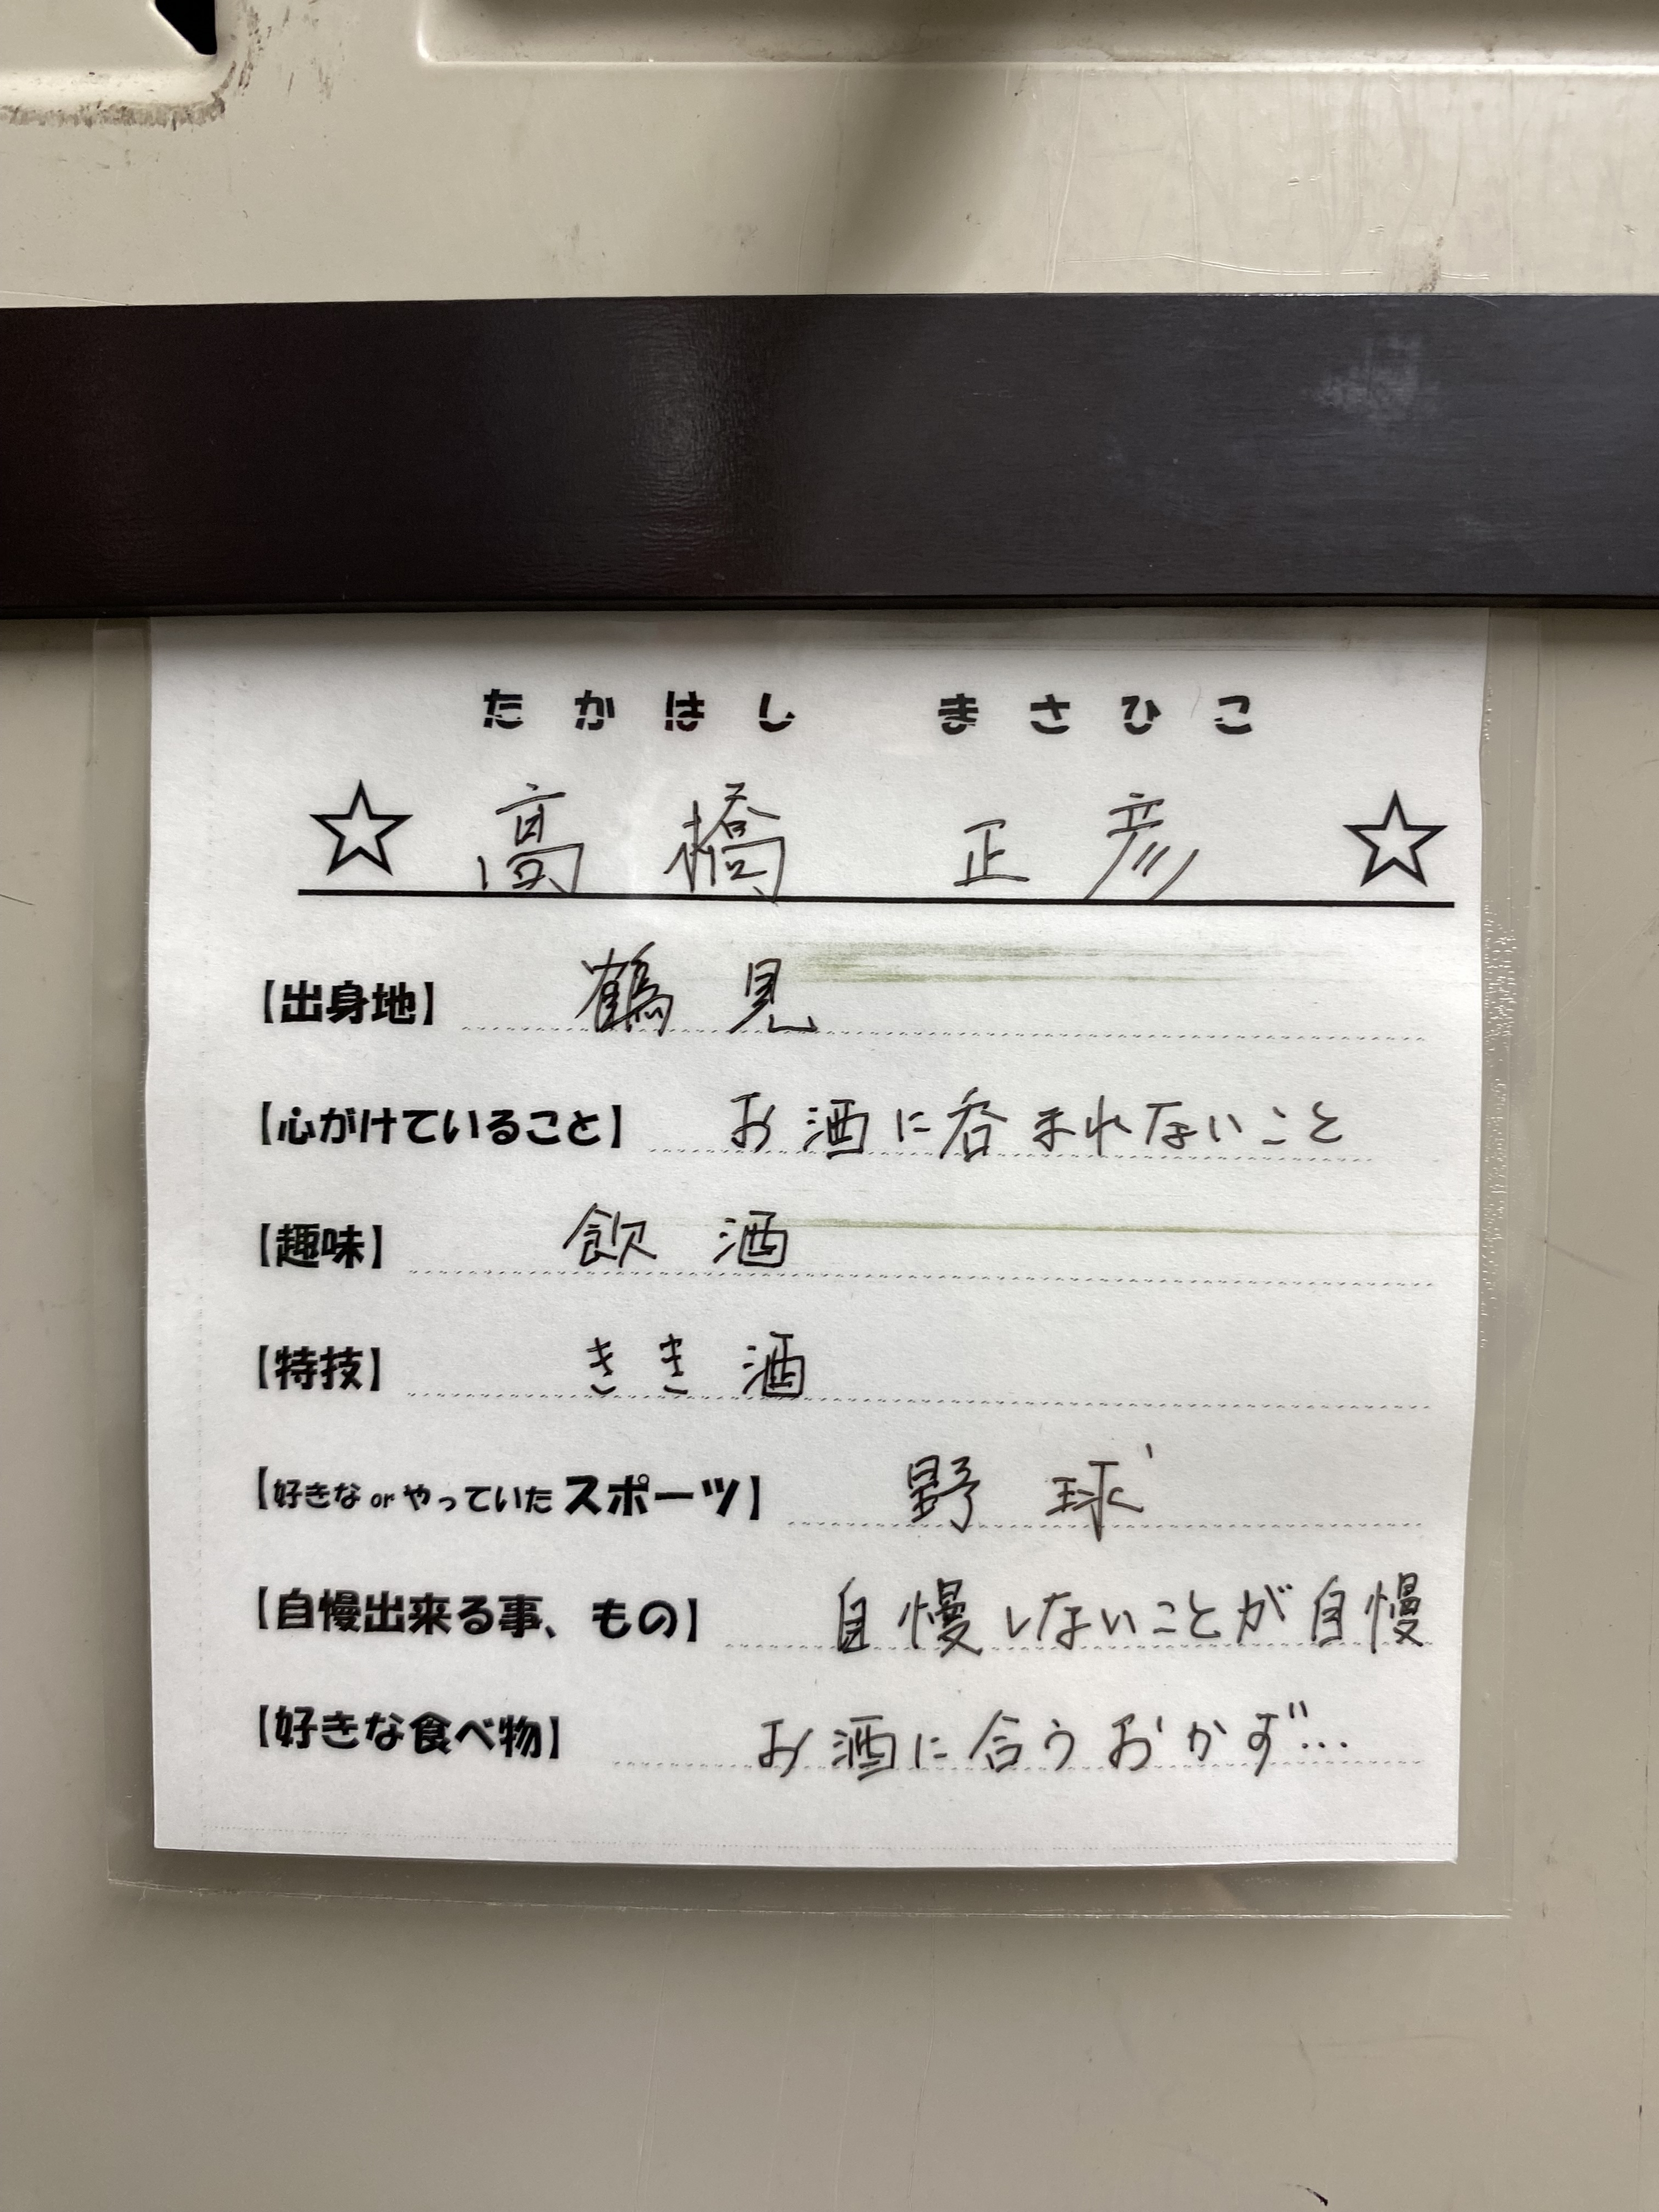 たかはし まさひこ
☆ 高橋 正彦 ☆
【出身地】 鶴見
【心がけていること】 お酒に呑まれないこと
【趣味】 飲酒
【特技】 きき酒
【好きな or やっていた スポーツ】 野球
【自慢出来る事、もの】 自慢しないことが自慢
【好きな食べ物】 お酒に合うおかず…